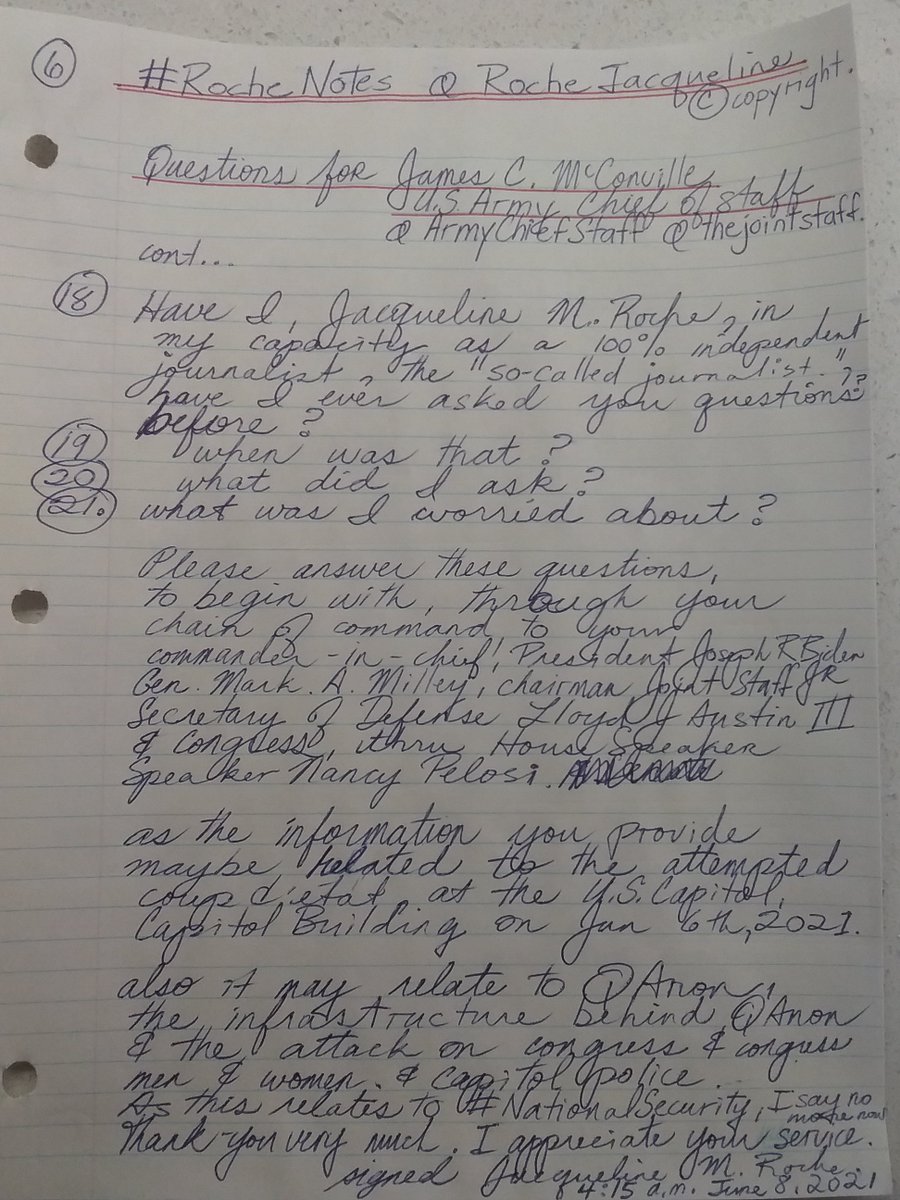 6
#Roche Notes @ Roche Jacqueline
© copyright.
Questions for James C. McConville
U.S Army Chief of Staff
@ ArmyChiefStaff @thejointstaff.
cont...
18 Have I, Jacqueline M. Roche, in
my capacity as a 100% independent
journalist, the "so-called journalist."?
have I ever asked you questions?
before?
19 when was that?
20 what did I ask?
21. what was I worried about?
Please answer these questions,
to begin with, through your
chain of command to your
commander-in-chief, President Joseph R Biden JR
Gen. Mark. A. Milley, chairman Joint Staff
Secretary of Defense Lloyd J Austin III
& Congress, thru House Speaker
Speaker Nancy Pelosi.
as the information you provide
maybe related to the attempted
coup d'etat at the U.S. Capitol,
Capitol Building on Jan 6th, 2021.
also it may relate to QAnon,
the infrastructure behind QAnon
& the attack on congress & congress
men & women. & Capitol police.
As this relates to #NationalSecurity, I say no
more now
Thank-you very much. I appreciate your service.
signed Jacqueline M. Roche.
4:15 a.m. June 8, 2021